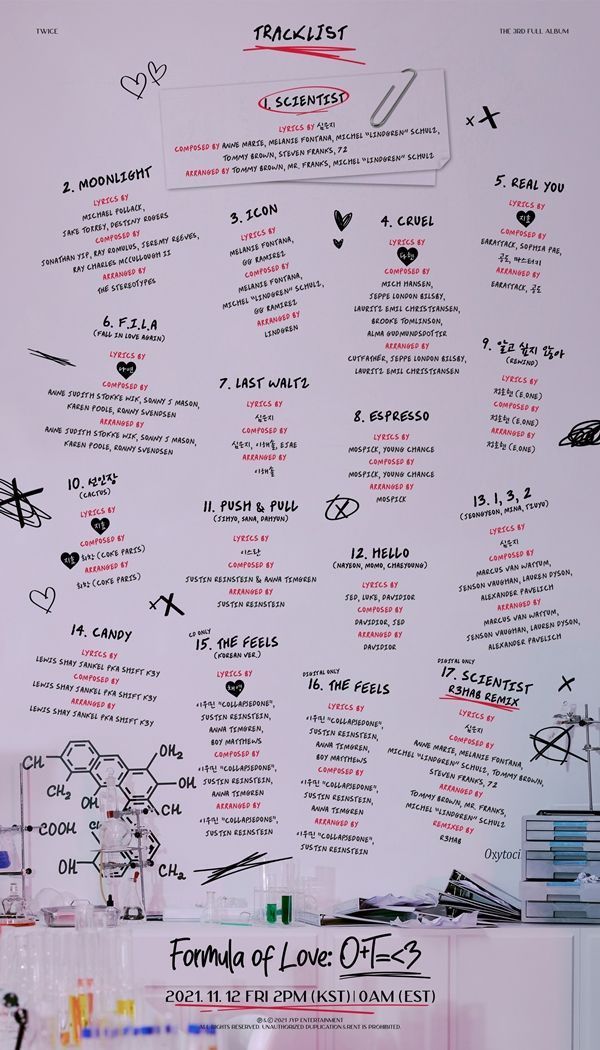 TWICE
THE 3RD FULL ALBUM
TRACKLIST
1. SCIENTIST
LYRICS BY 심은지
COMPOSED BY ANNE MARIE, MELANIE FONTANA, MICHEL "LINDGREN" SCHULZ,
TOMMY BROWN, STEVEN FRANKS, 72
ARRANGED BY TOMMY BROWN, MR. FRANKS, MICHEL "LINDGREN" SCHULZ
2. MOONLIGHT
LYRICS BY
MICHAEL POLLACK,
JAKE TORREY, DESTINY ROGERS
COMPOSED BY
JONATHAN YIP, RAY ROMULUS, JEREMY REEVES,
RAY CHARLES MCCULLOUGH II
ARRANGED BY
THE STEREOTYPES
3. ICON
LYRICS BY
MELANIE FONTANA,
GG RAMIREZ
COMPOSED BY
MELANIE FONTANA,
MICHEL "LINDGREN" SCHULZ,
GG RAMIREZ
ARRANGED BY
LINDGREN
4. CRUEL
LYRICS BY
다현
COMPOSED BY
MICH HANSEN,
JEPPE LONDON BILSBY,
LAURITZ EMIL CHRISTIANSEN,
BROOKE TOMLINSON,
ALMA GUDMUNDSDOTTIR
ARRANGED BY
CUTFATHER, JEPPE LONDON BILSBY,
LAURITZ EMIL CHRISTIANSEN
5. REAL YOU
LYRICS BY
지효
COMPOSED BY
EARATTACK, SOPHIA PAE,
공도, 따스터치
ARRANGED BY
EARATTACK, 공도
6. F.I.L.A
(FALL IN LOVE AGAIN)
LYRICS BY
나연
COMPOSED BY
ANNE JUDITH STOKKE WIK, SONNY J MASON,
KAREN POOLE, RONNY SVENDSEN
ARRANGED BY
ANNE JUDITH STOKKE WIK, SONNY J MASON,
KAREN POOLE, RONNY SVENDSEN
7. LAST WALTZ
LYRICS BY
심은지
COMPOSED BY
심은지, 이해솔, EJAE
ARRANGED BY
이해솔
8. ESPRESSO
LYRICS BY
MOSPICK, YOUNG CHANCE
COMPOSED BY
MOSPICK, YOUNG CHANCE
ARRANGED BY
MOSPICK
9. 알고 싶지 않아
(REWIND)
LYRICS BY
전호현 (E.ONE)
COMPOSED BY
전호현 (E.ONE)
ARRANGED BY
전호현 (E.ONE)
10. 선인장
(CACTUS)
LYRICS BY
지효
COMPOSED BY
지효 최현 (COKE PARIS)
ARRANGED BY
최현 (COKE PARIS)
11. PUSH & PULL
(JIHYO, SANA, DAHYUN)
LYRICS BY
이스란
COMPOSED BY
JUSTIN REINSTEIN & ANNA TIMGREN
ARRANGED BY
JUSTIN REINSTEIN
12. HELLO
(NAYEON, MOMO, CHAEYOUNG)
LYRICS BY
JED, LUKE, DAVIDIOR
COMPOSED BY
DAVIDIOR, JED
ARRANGED BY
DAVIDIOR
13. 1, 3, 2
(JEONGYEON, MINA, TZUYU)
LYRICS BY
심은지
COMPOSED BY
MARCUS VAN WATTUM,
JENSON VAUGHAN, LAUREN DYSON,
ALEXANDER PAVELICH
ARRANGED BY
MARCUS VAN WATTUM,
JENSON VAUGHAN, LAUREN DYSON,
ALEXANDER PAVELICH
14. CANDY
LYRICS BY
LEWIS SHAY JANKEL PKA SHIFT K3Y
COMPOSED BY
LEWIS SHAY JANKEL PKA SHIFT K3Y
ARRANGED BY
LEWIS SHAY JANKEL PKA SHIFT K3Y
CD ONLY
15. THE FEELS
(KOREAN VER.)
LYRICS BY
채영
이우민 "COLLAPSEDONE",
JUSTIN REINSTEIN,
ANNA TIMGREN,
BOY MATTHEWS
COMPOSED BY
이우민 "COLLAPSEDONE",
JUSTIN REINSTEIN,
ANNA TIMGREN
ARRANGED BY
이우민 "COLLAPSEDONE",
JUSTIN REINSTEIN
DIGITAL ONLY
16. THE FEELS
LYRICS BY
이우민 "COLLAPSEDONE",
JUSTIN REINSTEIN,
ANNA TIMGREN,
BOY MATTHEWS
COMPOSED BY
이우민 "COLLAPSEDONE",
JUSTIN REINSTEIN,
ANNA TIMGREN
ARRANGED BY
이우민 "COLLAPSEDONE",
JUSTIN REINSTEIN
DIGITAL ONLY
17. SCIENTIST
R3HAB REMIX
LYRICS BY
심은지
COMPOSED BY
ANNE MARIE, MELANIE FONTANA,
MICHEL "LINDGREN" SCHULZ, TOMMY BROWN,
STEVEN FRANKS, 72
ARRANGED BY
TOMMY BROWN, MR. FRANKS,
MICHEL "LINDGREN" SCHULZ
REMIXED BY
R3HAB
CH
OH₂
CH₂
OH
OH
CH
COOH
OH
CH₂
Oxytoci
Formula of Love: O+T=<3
2021. 11. 12 FRI 2PM (KST) | 0AM (EST)
Ⓟ & © 2021 JYP ENTERTAINMENT
ALL RIGHTS RESERVED. UNAUTHORIZED DUPLICATION & RENT IS PROHIBITED.